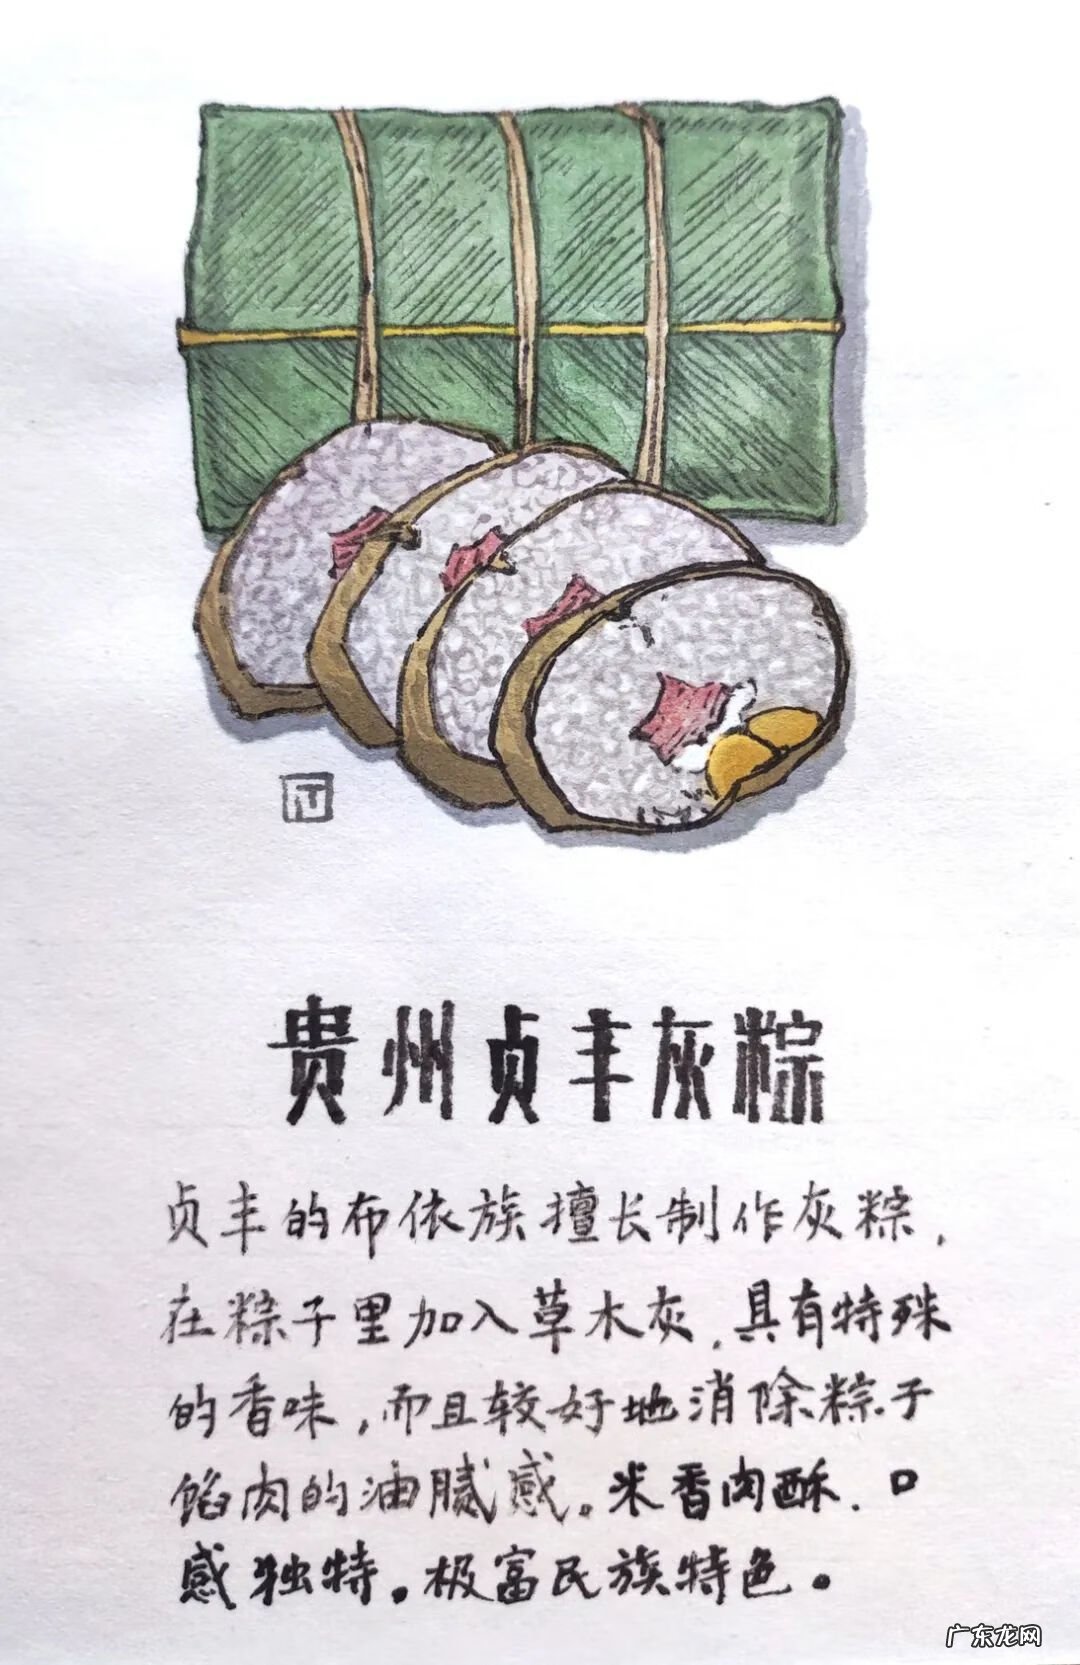 贵州贞丰灰粽
贞丰的布依族擅长制作灰粽，
在粽子里加入草木灰，具有特殊
的香味，而且较好地消除粽子
馅肉的油腻感。米香肉酥，口
感独特。极富民族特色。
广东龙网